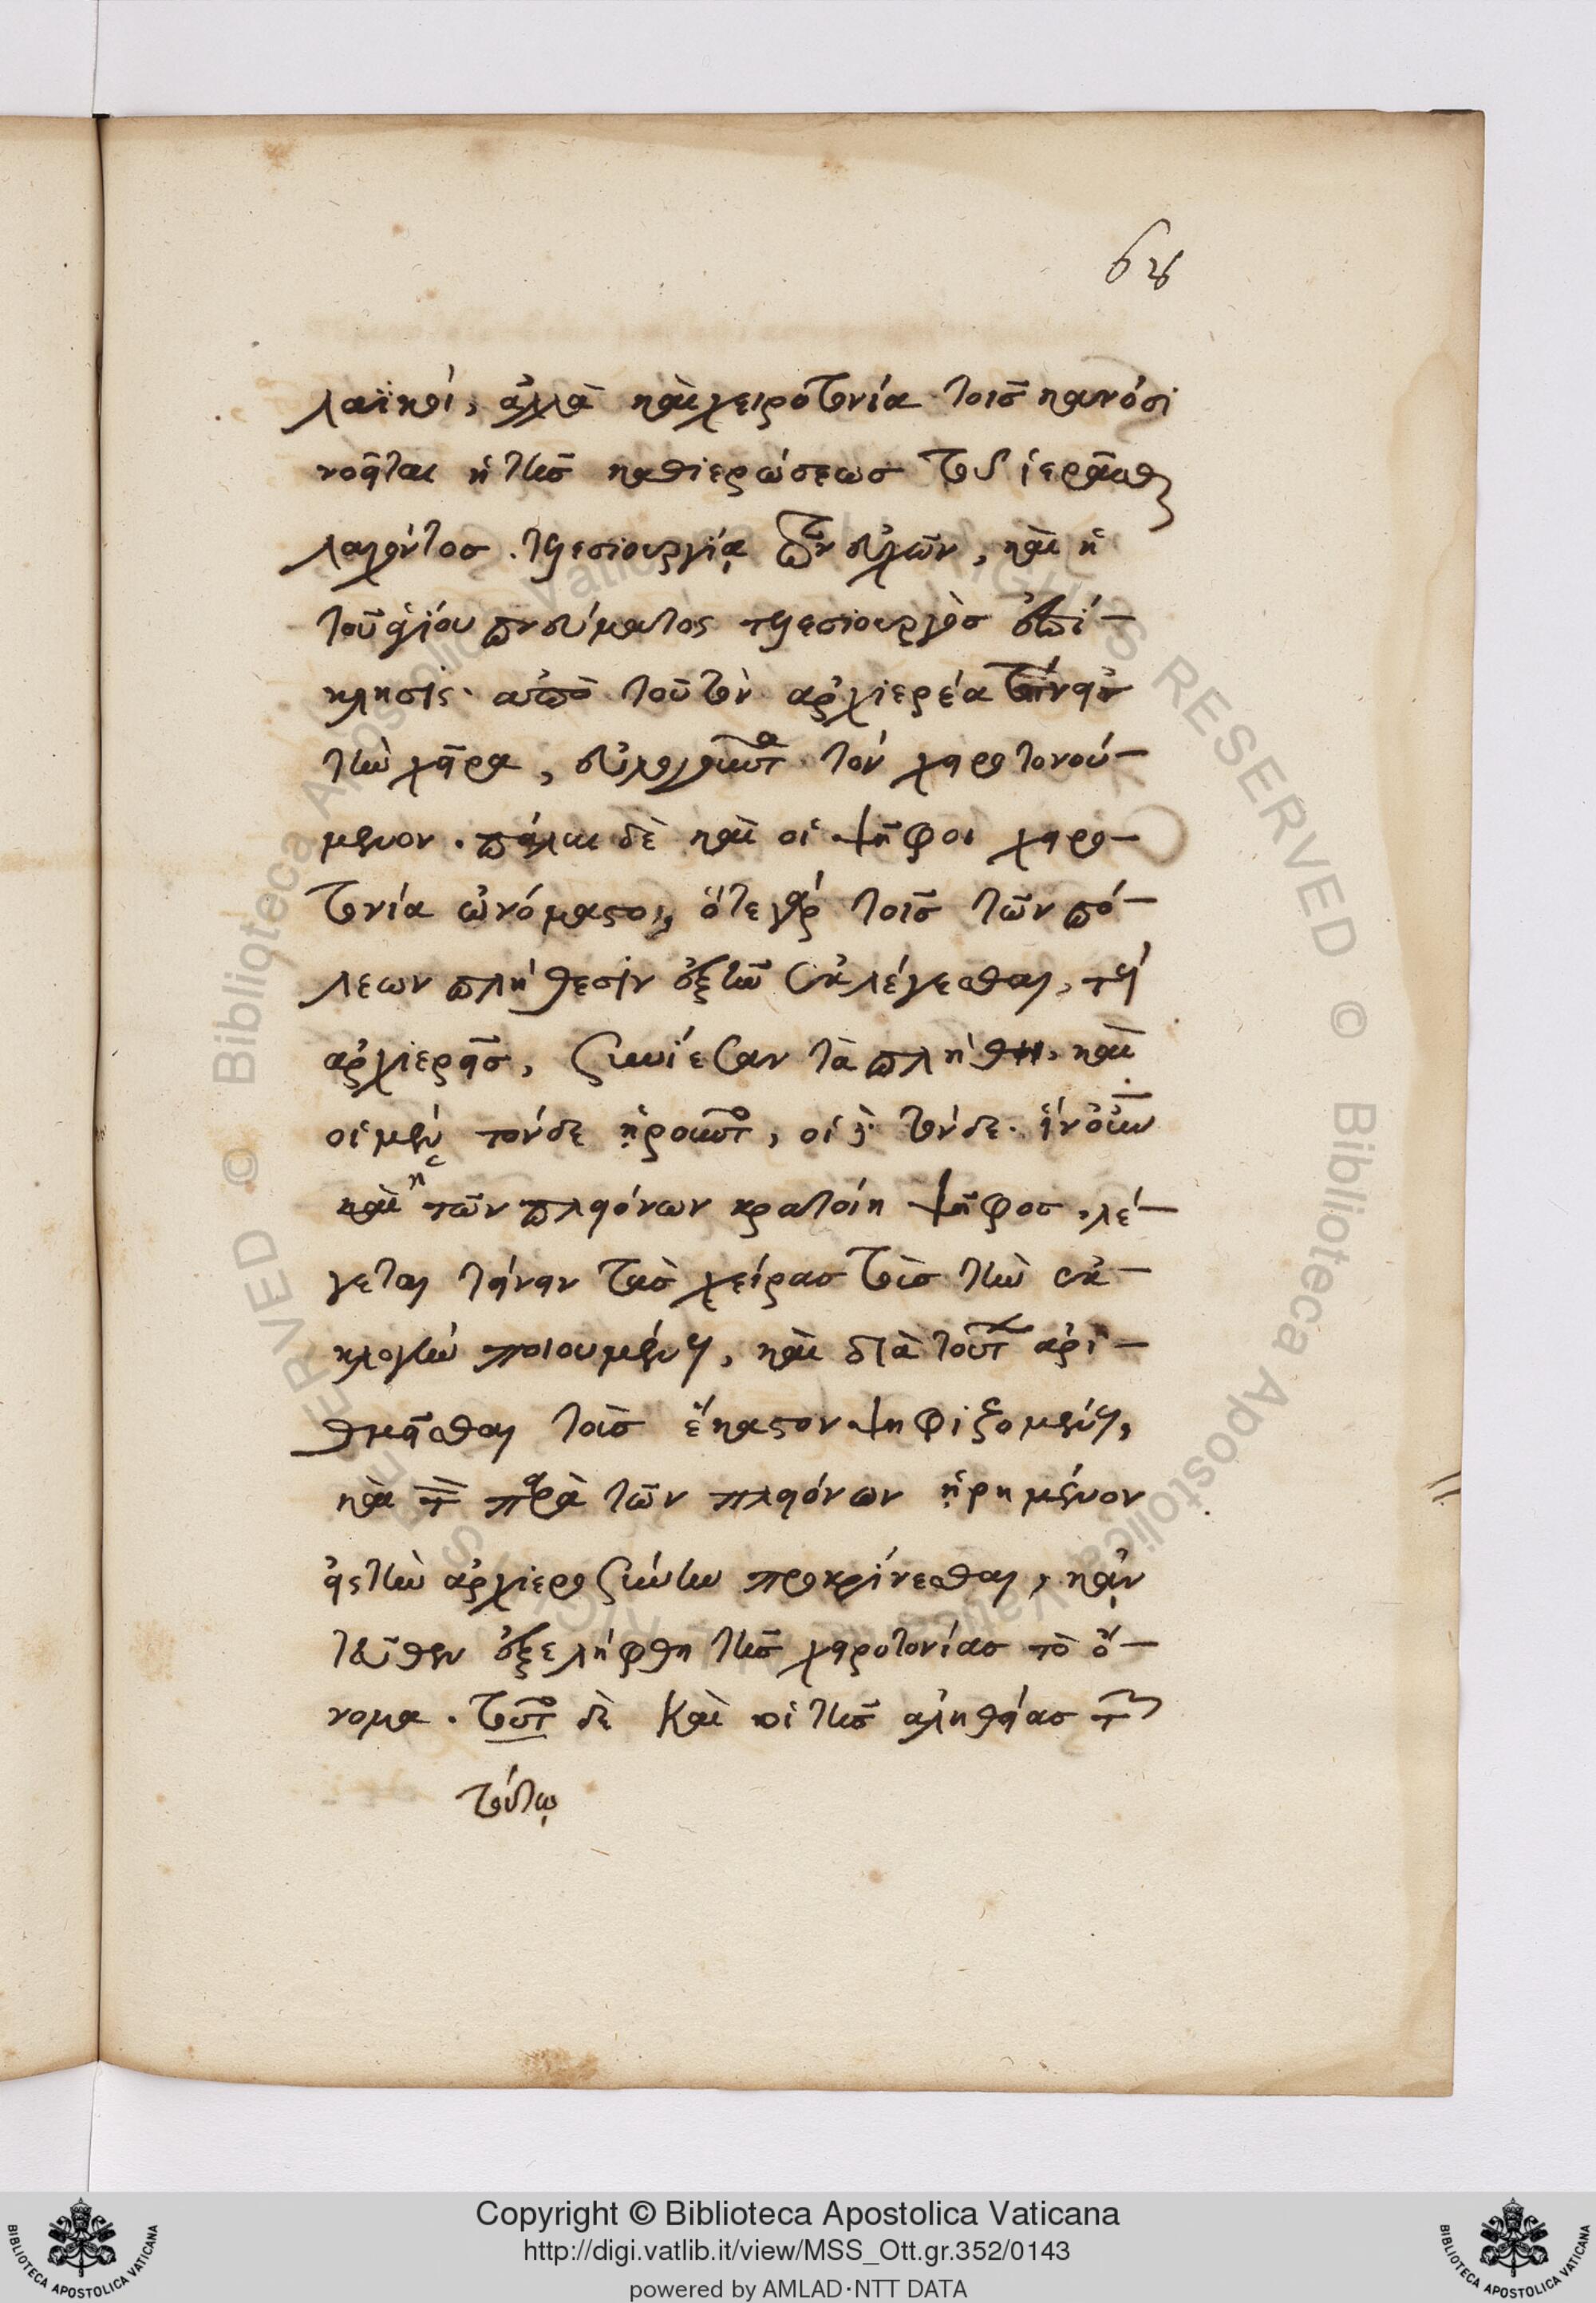 68
λαϊκοί, ἀλλὰ καὶ χειροτονία τοῖς κανόσι
νοεῖται ἡ τῆς καθιερώσεως τοῦ ἱερᾶσθ
λαχόντος. τελεσιουργία τῶν εὐχῶν, καὶ ἡ
τοῦ ἁγίου πνεύματος τελεσιουργὸς ἐπί-
κλησις. ἀπὸ τοῦ τὸν ἀρχιερέα τείνειν
τὴν χεῖρα, εὐλογοῦντα τὸν χειροτονού-
μενον. πάλαι δὲ καὶ αἱ ψῆφοι χειρο-
τονία ὠνόμαστο, ὅτε γὰρ τοῖς τῶν πό-
λεων πλήθεσιν ἐξῆν ἐκλέγεσθαι, τοὺς
ἀρχιερεῖς, συνίεσαν τὰ πλήθη, καὶ
οἱ μὲν τόνδε ᾑροῦντο, οἱ δὲ τόνδε. ἵν' οὖν
καὶ ἡ τῶν πλειόνων κρατοίη ψῆφος, λέ-
γεται τείνειν τὰς χεῖρας τοὺς τὴν ἐκ-
λογὴν ποιουμένους, καὶ διὰ τούτων ἀρι-
θμεῖσθαι τοὺς ἕκαστον ψηφιζομένους,
καὶ τὸν παρὰ τῶν πλειόνων ᾑρημένον
εἰς τὴν ἀρχιερωσύνην προκρίνεσθαι, κἀν
τεῦθεν ἐξελήφθη τῆς χειροτονίας τὸ ὄ-
νομα. τοῦτο δὲ καὶ οἱ τῆς ἀληθείας
τούτῳ
Copyright © Biblioteca Apostolica Vaticana
http://digi.vatlib.it/view/MSS_Ott.gr.352/0143
powered by AMLAD·NTT DATA